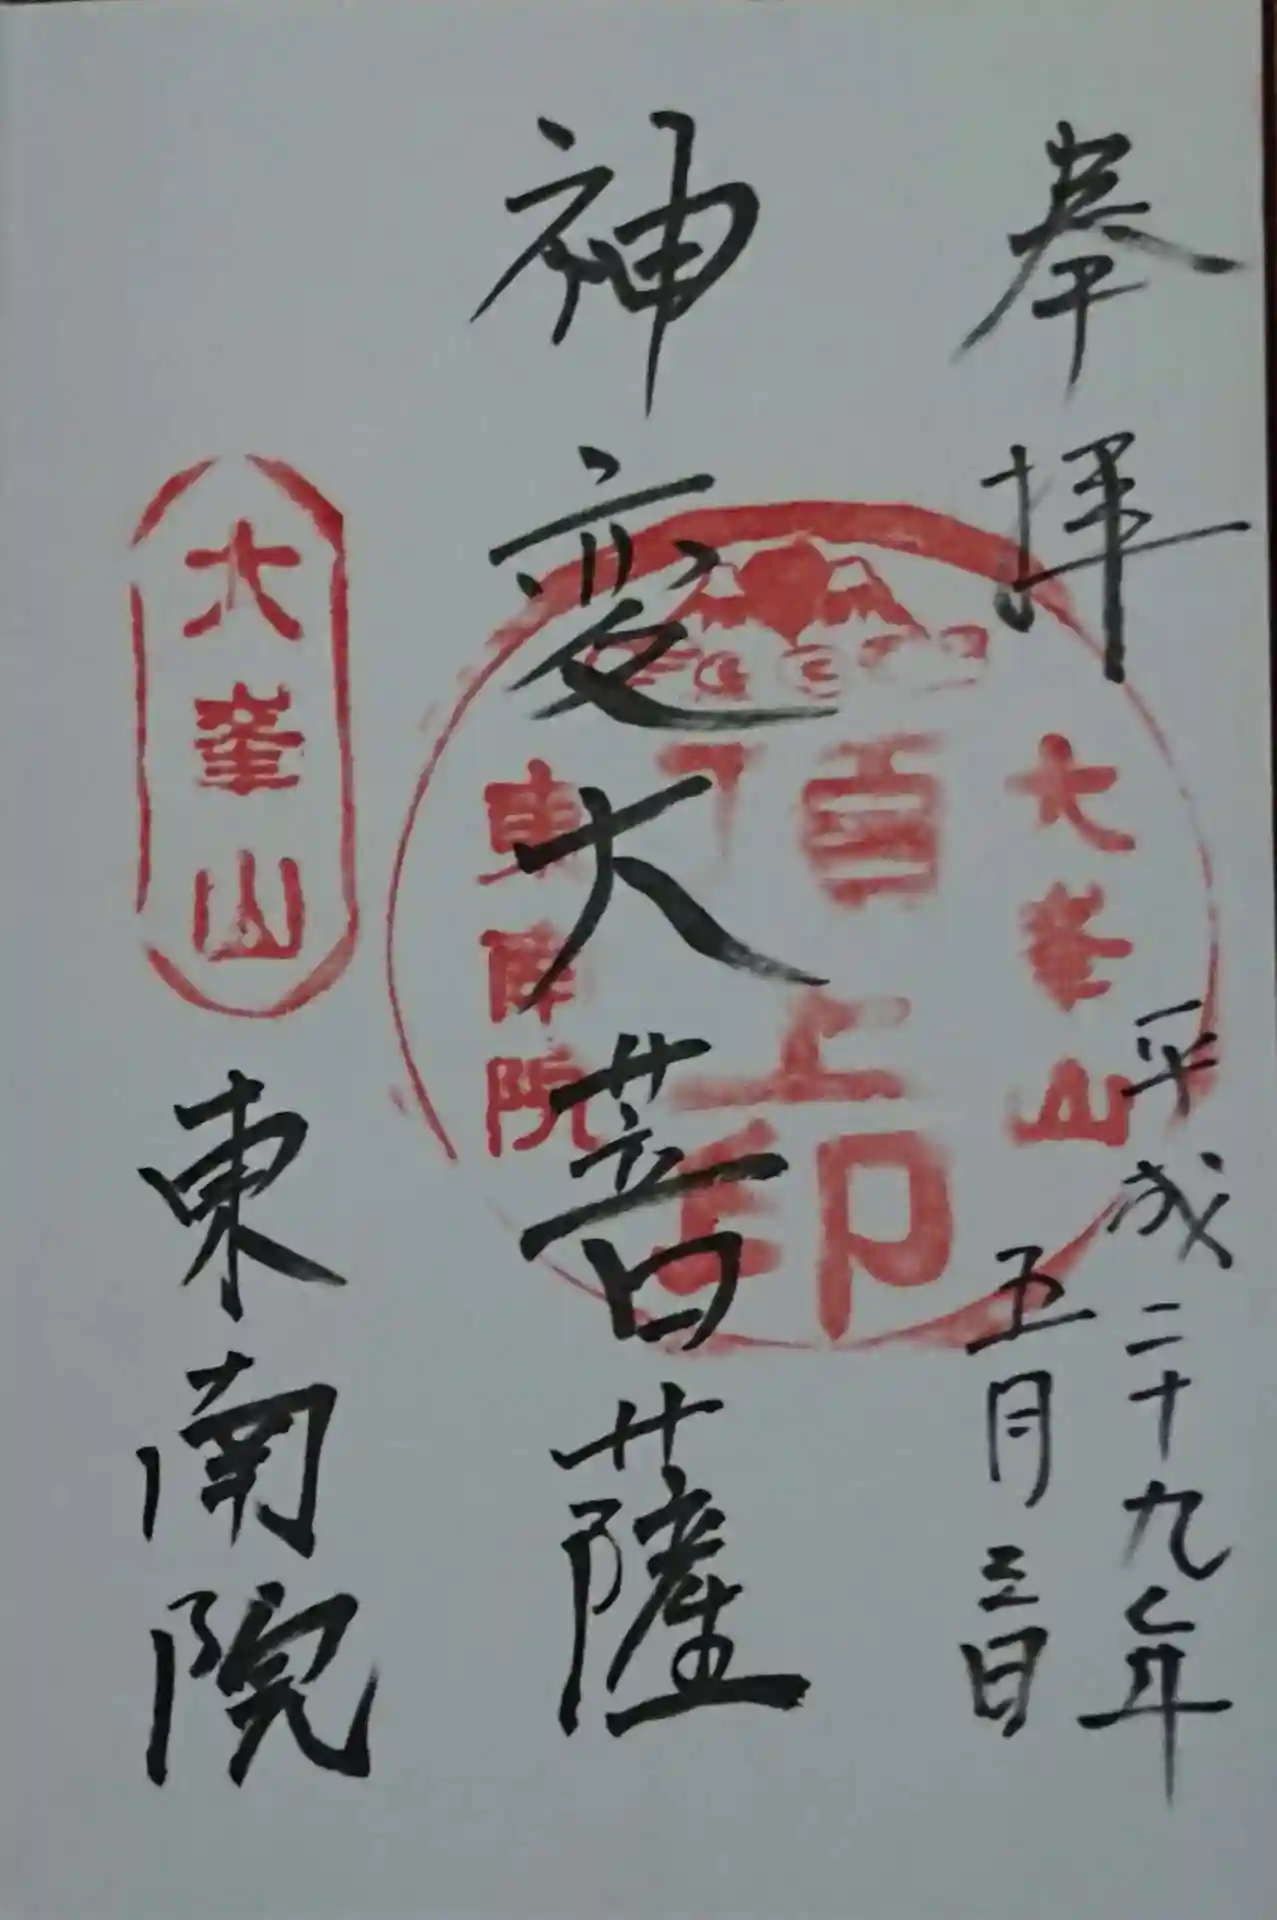 奉拝
平成二十九年
五月三日
神変大菩薩
大峯山
頂上
印
東南院
大峯山
東南院